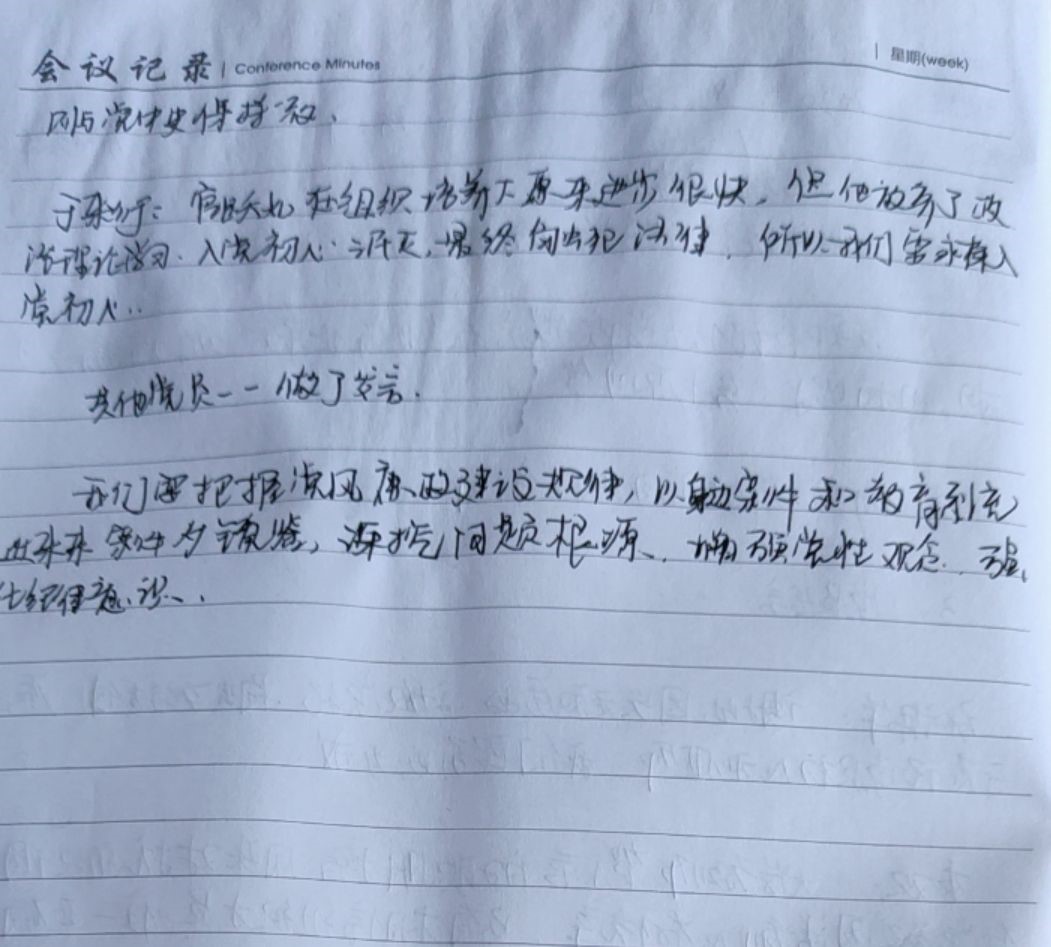 会议记录 | Conference Minutes
| 星期(week)
与党中央保持一致、
在组织培养下原来进步很快，但他放弃了政
治理论学习、入党初心 最终 法律，所以我们需
党初心..
其他党员一一做了发言.
我们要把握党风廉政建设规律，以身边案件和教育
案件为镜鉴，深挖问题根源、增强党性观念、强
化纪律意识、.